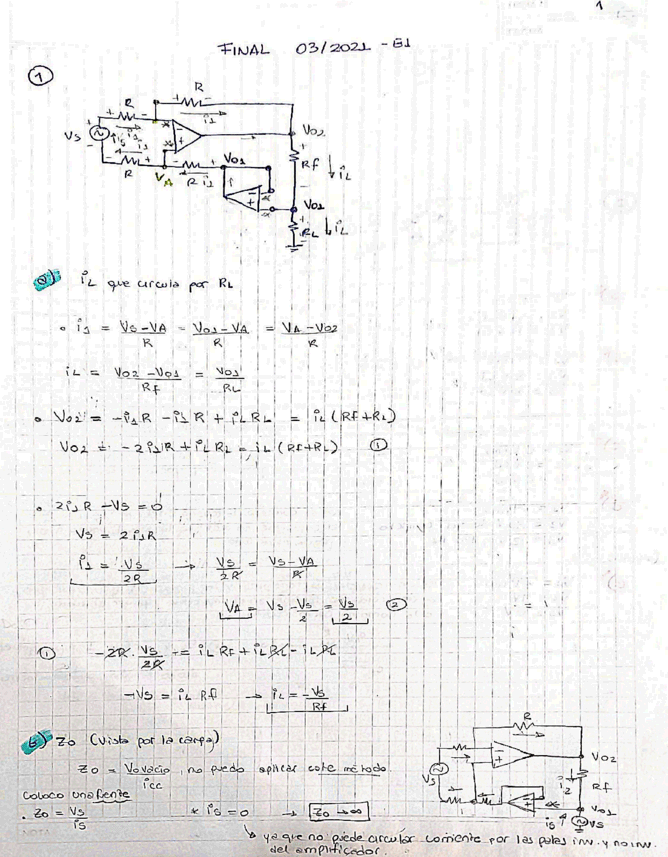 1
FINAL 03/2021 - E1
1
R
+ -
i1
R
+ -
VS
+
-
is
i1
i1
- +
R
VA
- +
R i1
VO1
-
+
-
+
VO2
+
Rf
-
iL
VO1
+
RL
-
iL
a) iL que circula por RL
• i1 = VS-VA / R = VO1-VA / R = VA-VO2 / R
iL = VO2-VO1 / Rf = VO1 / RL
• VO2 = -i1R -i1R + iLRL = iL(Rf+RL)
VO2 = -2i1R + iLRL = iL(Rf+RL) 1
• 2i1R - VS = 0
VS = 2i1R
i1 = VS / 2R → VS / 2R = VS-VA / R
VA = VS - VS / 2 = VS / 2 2
1 -2R. VS / 2R = iL Rf + iL RL - iL RL
-VS = iL Rf → iL = -VS / Rf
b) ZO (vista por la carga)
ZO = Vovacio / icc, no puedo aplicar este método.
Coloco una fuente
. ZO = VS / iS * iS = 0 → ZO → ∞
↳ ya que no puede circular corriente por las patas inv. y no inv.
del amplificador.
R
VS
-
+
-
+
VO2
i2
Rf
VO1
iS
VS
NOTA